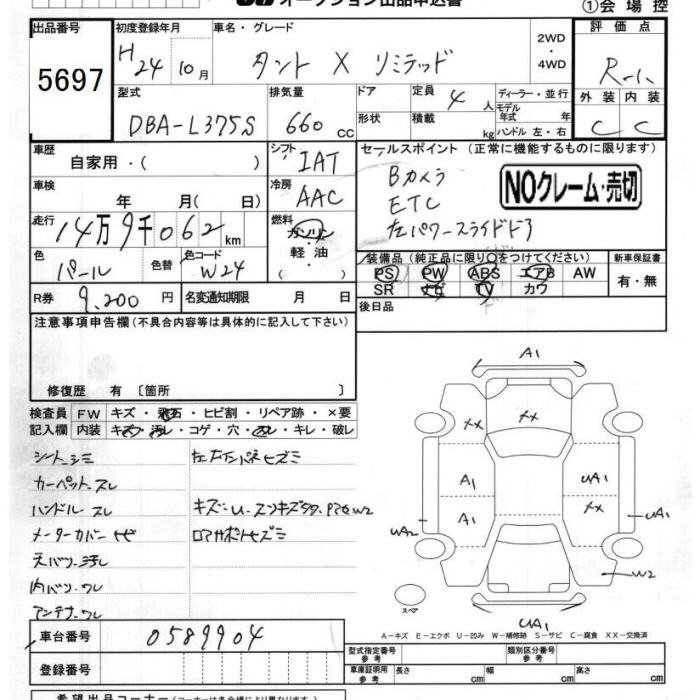 オークション出品申込書
①会場控
出品番号
5697
初度登録年月
H24 10月
車名・グレード
タント X リミテッド
2WD
・
4WD
評価点
R-1
外装 内装
C C
型式
DBA-L375S
排気量
660 CC
ドア
形状
定員 4 人
積載 kg
ディーラー・並行
モデル
年式 年
ハンドル 左・右
車歴
自家用・( )
シフト IAT
冷房 AAC
車検
年 月( 日)
走行
14万9千062 km
燃料
ガソリン
・
軽油
・
( )
色
パール
色替
色コード
W24
R券 9,200 円
名変通知期限 月 日
セールスポイント (正常に機能するものに限ります)
Bカメラ
ETC
左パワースライドドア
NOクレーム・売切
装備品 (純正品に限り〇をつけてください)
PS PW ABS エアB AW
SR ナビ TV カワ
新車保証書
有・無
後日品
注意事項申告欄(不具合内容等は具体的に記入して下さい)
修復歴 有 〔箇所 〕
検査員
記入欄
FW キズ・飛石・ヒビ割・リペア跡・×要
内装 キズ・汚レ・コゲ・穴・スレ・キレ・破レ
シート シミ
カーペット スレ
ハンドル スレ
メーターカバー ヒビ
天バリ 汚レ
内バリ ワレ
アンテナ ワレ
A1
XX
XX
A1
A1
UA1
XX
UA2
UA1
W2
UA1
スペア
A－キズ E－エクボ U－凹み W－補修跡 S－サビ C－腐食 XX－交換済
車台番号
0589904
登録番号
型式指定番号
参考
類別区分番号
参考
車庫証明用
参考
長さ cm
幅 cm
高さ cm
希望出品コーナー